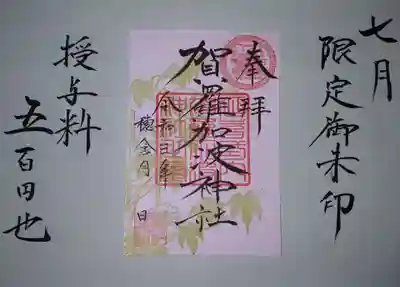 七月
限定御朱印
奉拝
賀羅加波神社
令和三年
穂含月 日
授与料
五百円也